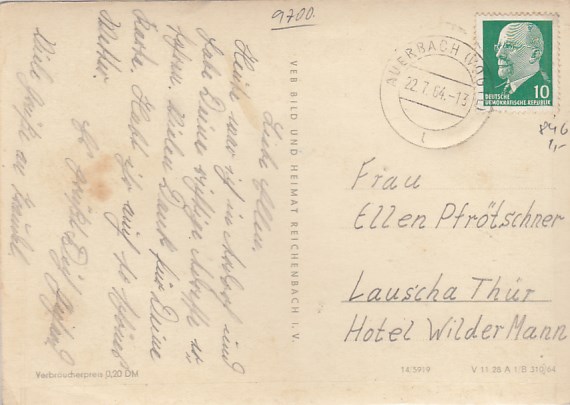 9700.
Liebe Ellen.
Heute war ich in und
habe Deine
Vielen Dank für Deine
Karte. Habt ihr auch so schönes
Wetter.
Es grüßt Dich
Viele Grüße an
VEB BILD UND HEIMAT REICHENBACH I. V.
AUERBACH (VOGTL)
22.7.64.-13
t
10
DEUTSCHE
DEMOKRATISCHE REPUBLIK
846
1,-
Frau
Ellen Pfrötschner
Lauscha Thür
Hotel Wilder Mann
Verbraucherpreis 0,20 DM
14/5919
V 11 28 A 1/B 310/64